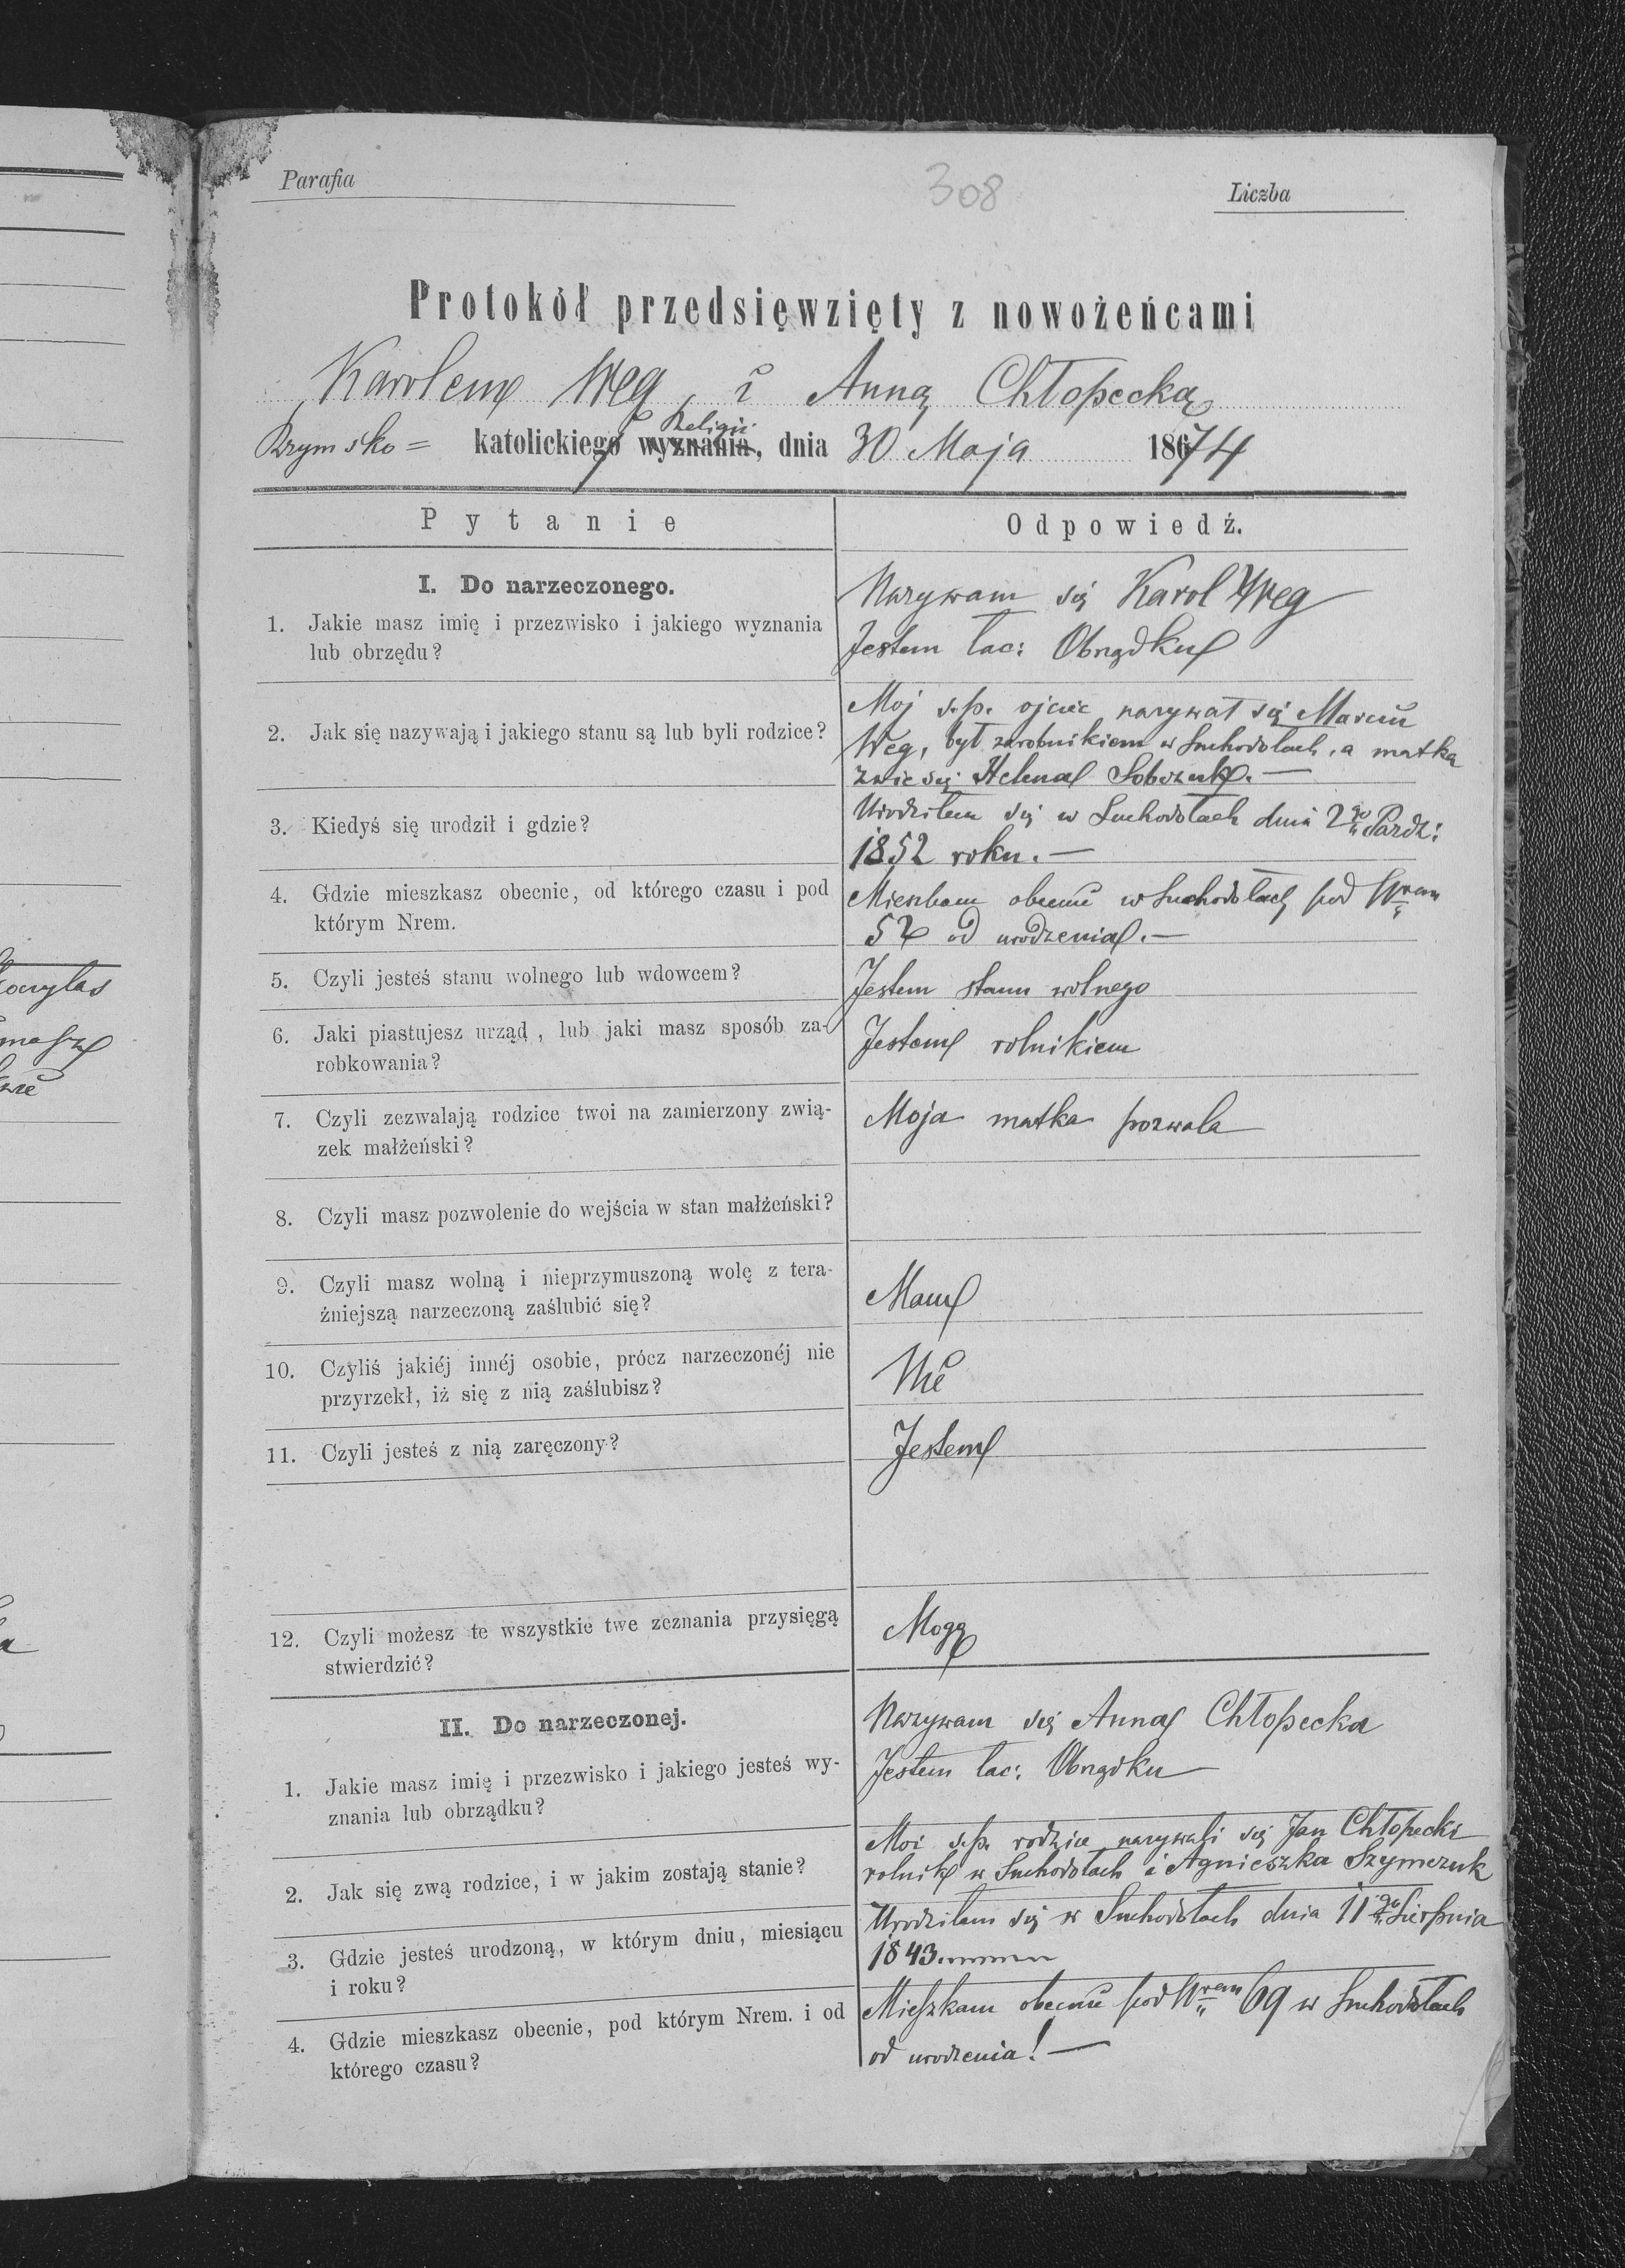 Parafia
308
Liczba
Protokół przedsięwzięty z nowożeńcami
Karolem Weg i Anną Chłopecką
Rzymsko= katolickiego wyznania, Religii dnia 30 Maja 1874
Pytanie
Odpowiedź.
I. Do narzeczonego.
1. Jakie masz imię i przezwisko i jakiego wyznania
lub obrzędu?
Nazywam się Karol Weg
Jestem łac: Obrządku
2. Jak się nazywają i jakiego stanu są lub byli rodzice?
Moj ś.p. ojciec nazywał się Marcin
Weg, był zarobnikiem w Suchodołach, a matka
zwie się Helena Sobczuk.—
3. Kiedyś się urodził i gdzie?
Urodziłem się w Suchodołach dnia 2go Paźdz:
1852 roku.—
4. Gdzie mieszkasz obecnie, od którego czasu i pod
którym Nrem.
Mieszkam obecnie w Suchodołach pod Nrem
52 od urodzenia.—
5. Czyli jesteś stanu wolnego lub wdowcem?
Jestem stanu wolnego
6. Jaki piastujesz urząd, lub jaki masz sposób za-
robkowania?
Jestem rolnikiem
7. Czyli zezwalają rodzice twoi na zamierzony zwią-
zek małżeński?
Moja matka pozwala
8. Czyli masz pozwolenie do wejścia w stan małżeński?
9. Czyli masz wolną i nieprzymuszoną wolę z tera-
źniejszą narzeczoną zaślubić się?
Mam
10. Czyliś jakiéj innéj osobie, prócz narzeczonéj nie
przyrzekł, iż się z nią zaślubisz?
Nie
11. Czyli jesteś z nią zaręczony?
Jestem
12. Czyli możesz te wszystkie twe zeznania przysięgą
stwierdzić?
Mogę
II. Do narzeczonej.
1. Jakie masz imię i przezwisko i jakiego jesteś wy-
znania lub obrządku?
Nazywam się Anna Chłopecka
Jestem łac: Obrządku
2. Jak się zwą rodzice, i w jakim zostają stanie?
Moi ś.p. rodzice nazywali się Jan Chłopecki
rolnik w Suchodołach i Agnieszka Szymczuk
3. Gdzie jesteś urodzoną, w którym dniu, miesiącu
i roku?
Urodziłam się w Suchodołach dnia 11go Sierpnia
1843.
4. Gdzie mieszkasz obecnie, pod którym Nrem. i od
którego czasu?
Mieszkam obecnie pod Nrem 69 w Suchodołach
od urodzenia!—